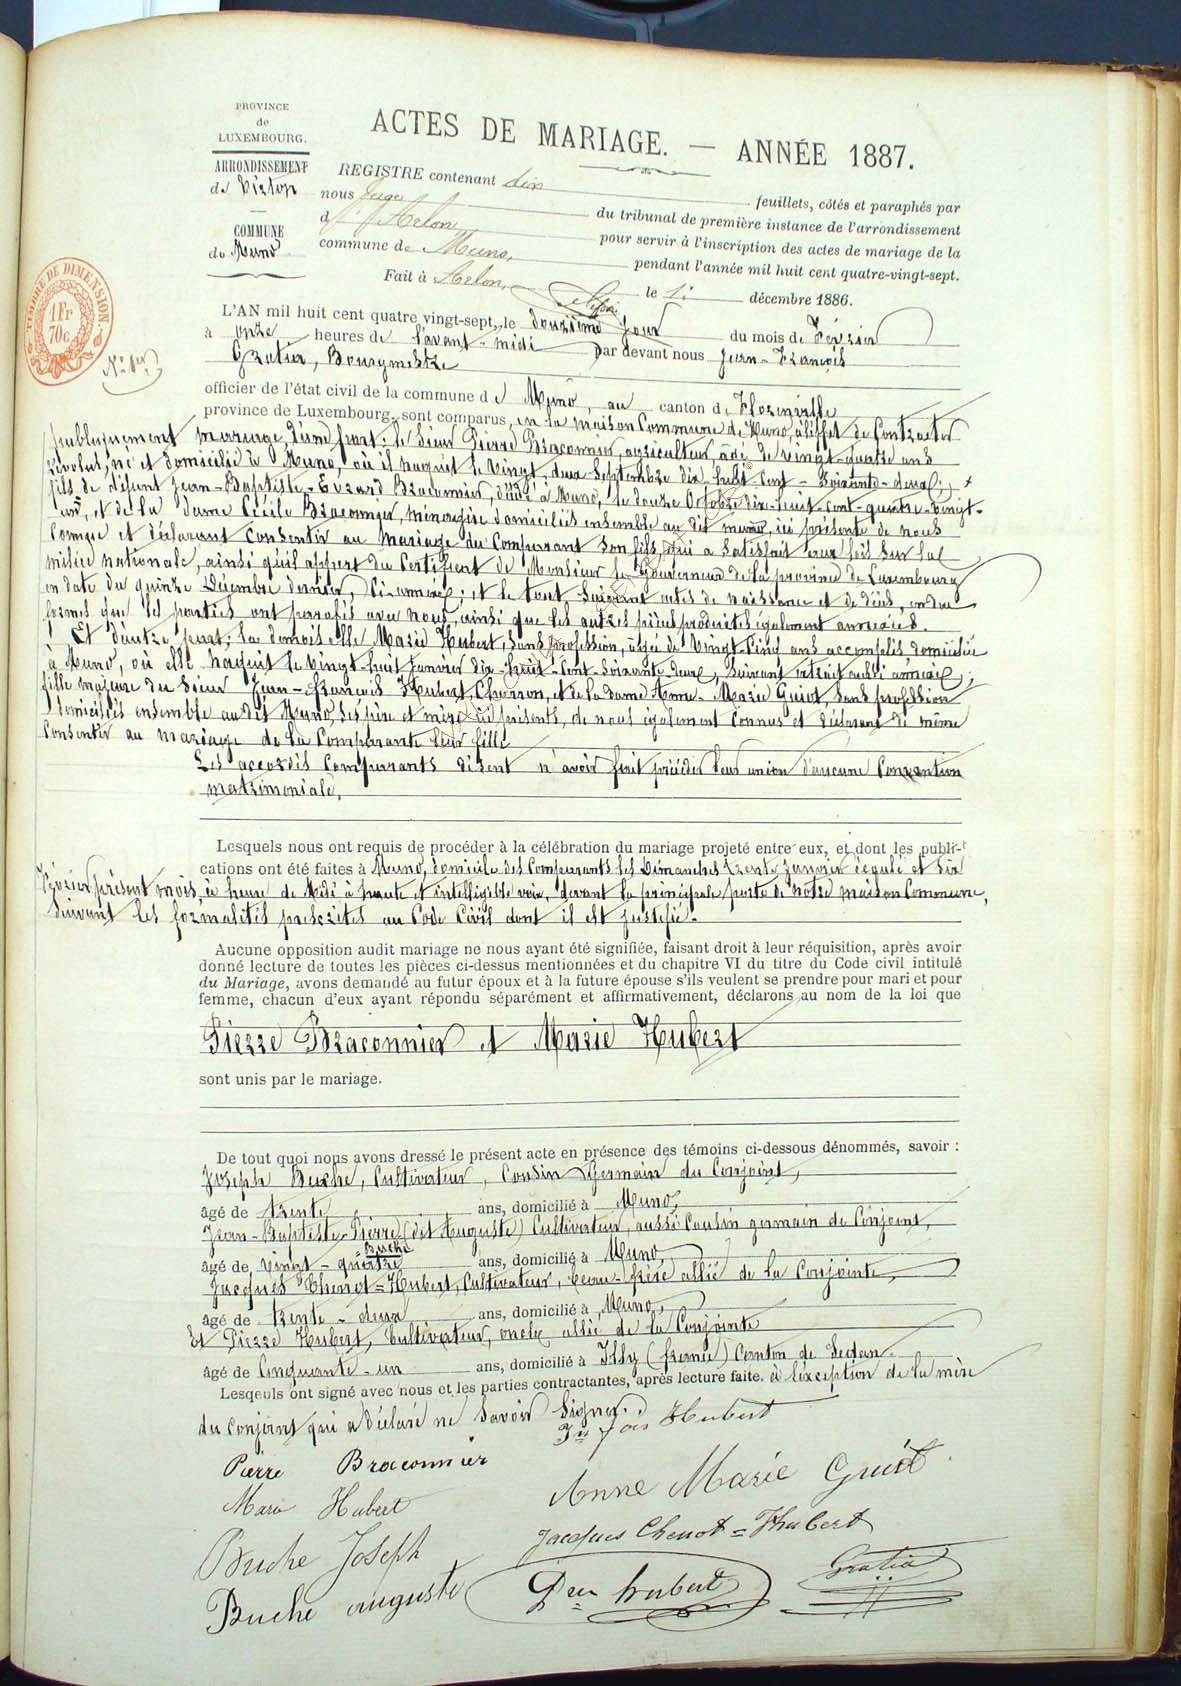 PROVINCE
de
LUXEMBOURG.
ARRONDISSEMENT
de Virton
COMMUNE
de Muno
TIMBRE DE DIMENSION
1 Fr
70 c.
N° 1er
ACTES DE MARIAGE. — ANNÉE 1887.
REGISTRE contenant dix feuillets, côtés et paraphés par
nous Juge du tribunal de première instance de l'arrondissement
d'Arlon pour servir à l'inscription des actes de mariage de la
commune de Muno, pendant l'année mil huit cent quatre-vingt-sept.
Fait à Arlon, le 1er décembre 1886.
L'AN mil huit cent quatre vingt-sept, le douzième jour du mois de Février
à onze heures de l'avant-midi par devant nous Jean-François
Gratia, Bourgmestre
officier de l'état civil de la commune de Muno, au canton de Florenville
province de Luxembourg, sont comparus, en la maison Commune de Muno, à l'effet de Contracter
publiquement mariage, d'une part; le Sieur Pierre Braconnier, agriculteur, âgé de vingt-quatre ans
révolus, né et domicilié à Muno, où il naquit le vingt-deux Septembre dix-huit-Cent-Soixante-deux;
fils de défunt Jean-Baptiste-Evrard Braconnier, décédé à Muno, le douze Octobre dix-huit-cent-quatre-vingt-
, et de la dame Cécile Braconnier, ménagère domiciliés ensemble au dit même, ici présente de nous
Connue et déclarant Consentir au mariage du Comparant son fils, qui a satisfait aux lois sur la
milice nationale, ainsi qu'il appert du Certificat de Monsieur le Gouverneur de la province de Luxembourg
en date du quinze Décembre dernier, Ci-annexé; et le tout Suivant actes de naissance et de décès, en due
formes que les parties ont paraphés avec nous, ainsi que les autres pièces produites également annexées.
Et d'autre part; la demoiselle Marie Hubert, Sans profession, âgée de Vingt-Cinq ans accomplis domiciliée
à Muno, où elle naquit le Vingt-huit Janvier dix-huit-Cent-Soixante-deux, Suivant extrait aussi annexé;
fille majeure du Sieur Jean-François Hubert, Charron, et de la dame Anne-Marie Guiot, Sans profession
domiciliés ensemble au dit Muno, Ses père et mère ici présents, de nous également Connus et déclarant de même
Consentir au mariage de la Comparante leur fille
Les accordés Comparants disent n'avoir fait précéder leur union d'aucune Convention
matrimoniale.
Lesquels nous ont requis de procéder à la célébration du mariage projeté entre eux, et dont les publi-
cations ont été faites à Muno, domicile des Comparants les Dimanches trente Janvier écoulé et Six
Février présent mois, à heure de Midi à haute et intelligible voix, devant la principale porte de notre maison Commune,
Suivant les formalités prescrites au Code Civil dont il est Justifié.
Aucune opposition audit mariage ne nous ayant été signifiée, faisant droit à leur réquisition, après avoir
donné lecture de toutes les pièces ci-dessus mentionnées et du chapitre VI du titre du Code civil intitulé
du Mariage, avons demandé au futur époux et à la future épouse s'ils veulent se prendre pour mari et pour
femme, chacun d'eux ayant répondu séparément et affirmativement, déclarons au nom de la loi que
Pierre Braconnier et Marie Hubert
sont unis par le mariage.
De tout quoi nous avons dressé le présent acte en présence des témoins ci-dessous dénommés, savoir :
Joseph Buche, Cultivateur, Cousin Germain du Conjoint,
âgé de trente ans, domicilié à Muno,
Jean-Baptiste-Pierre (dit Auguste) Cultivateur, aussi Cousin germain de Conjoint,
Buche
âgé de vingt-quatre ans, domicilié à Muno
Jacques Chenot=Hubert, Cultivateur, beau-frère allié de la Conjointe,
âgé de trente-deux ans, domicilié à Muno,
Et Pierre Hubert, Cultivateur, oncle allié de la Conjointe
âgé de Cinquante-un ans, domicilié à Illy (france) Canton de Sedan
Lesqeuls ont signé avec nous et les parties contractantes, après lecture faite. à l'exception de la mère
du Conjoint qui a déclaré ne Savoir Signer.
Jn fois Hubert
Pierre Braconnier
Anne Marie Guiot
Marie Hubert
Jacques Chenot=Hubert
Buche Joseph
Gratia
Buche auguste
Pre hubert